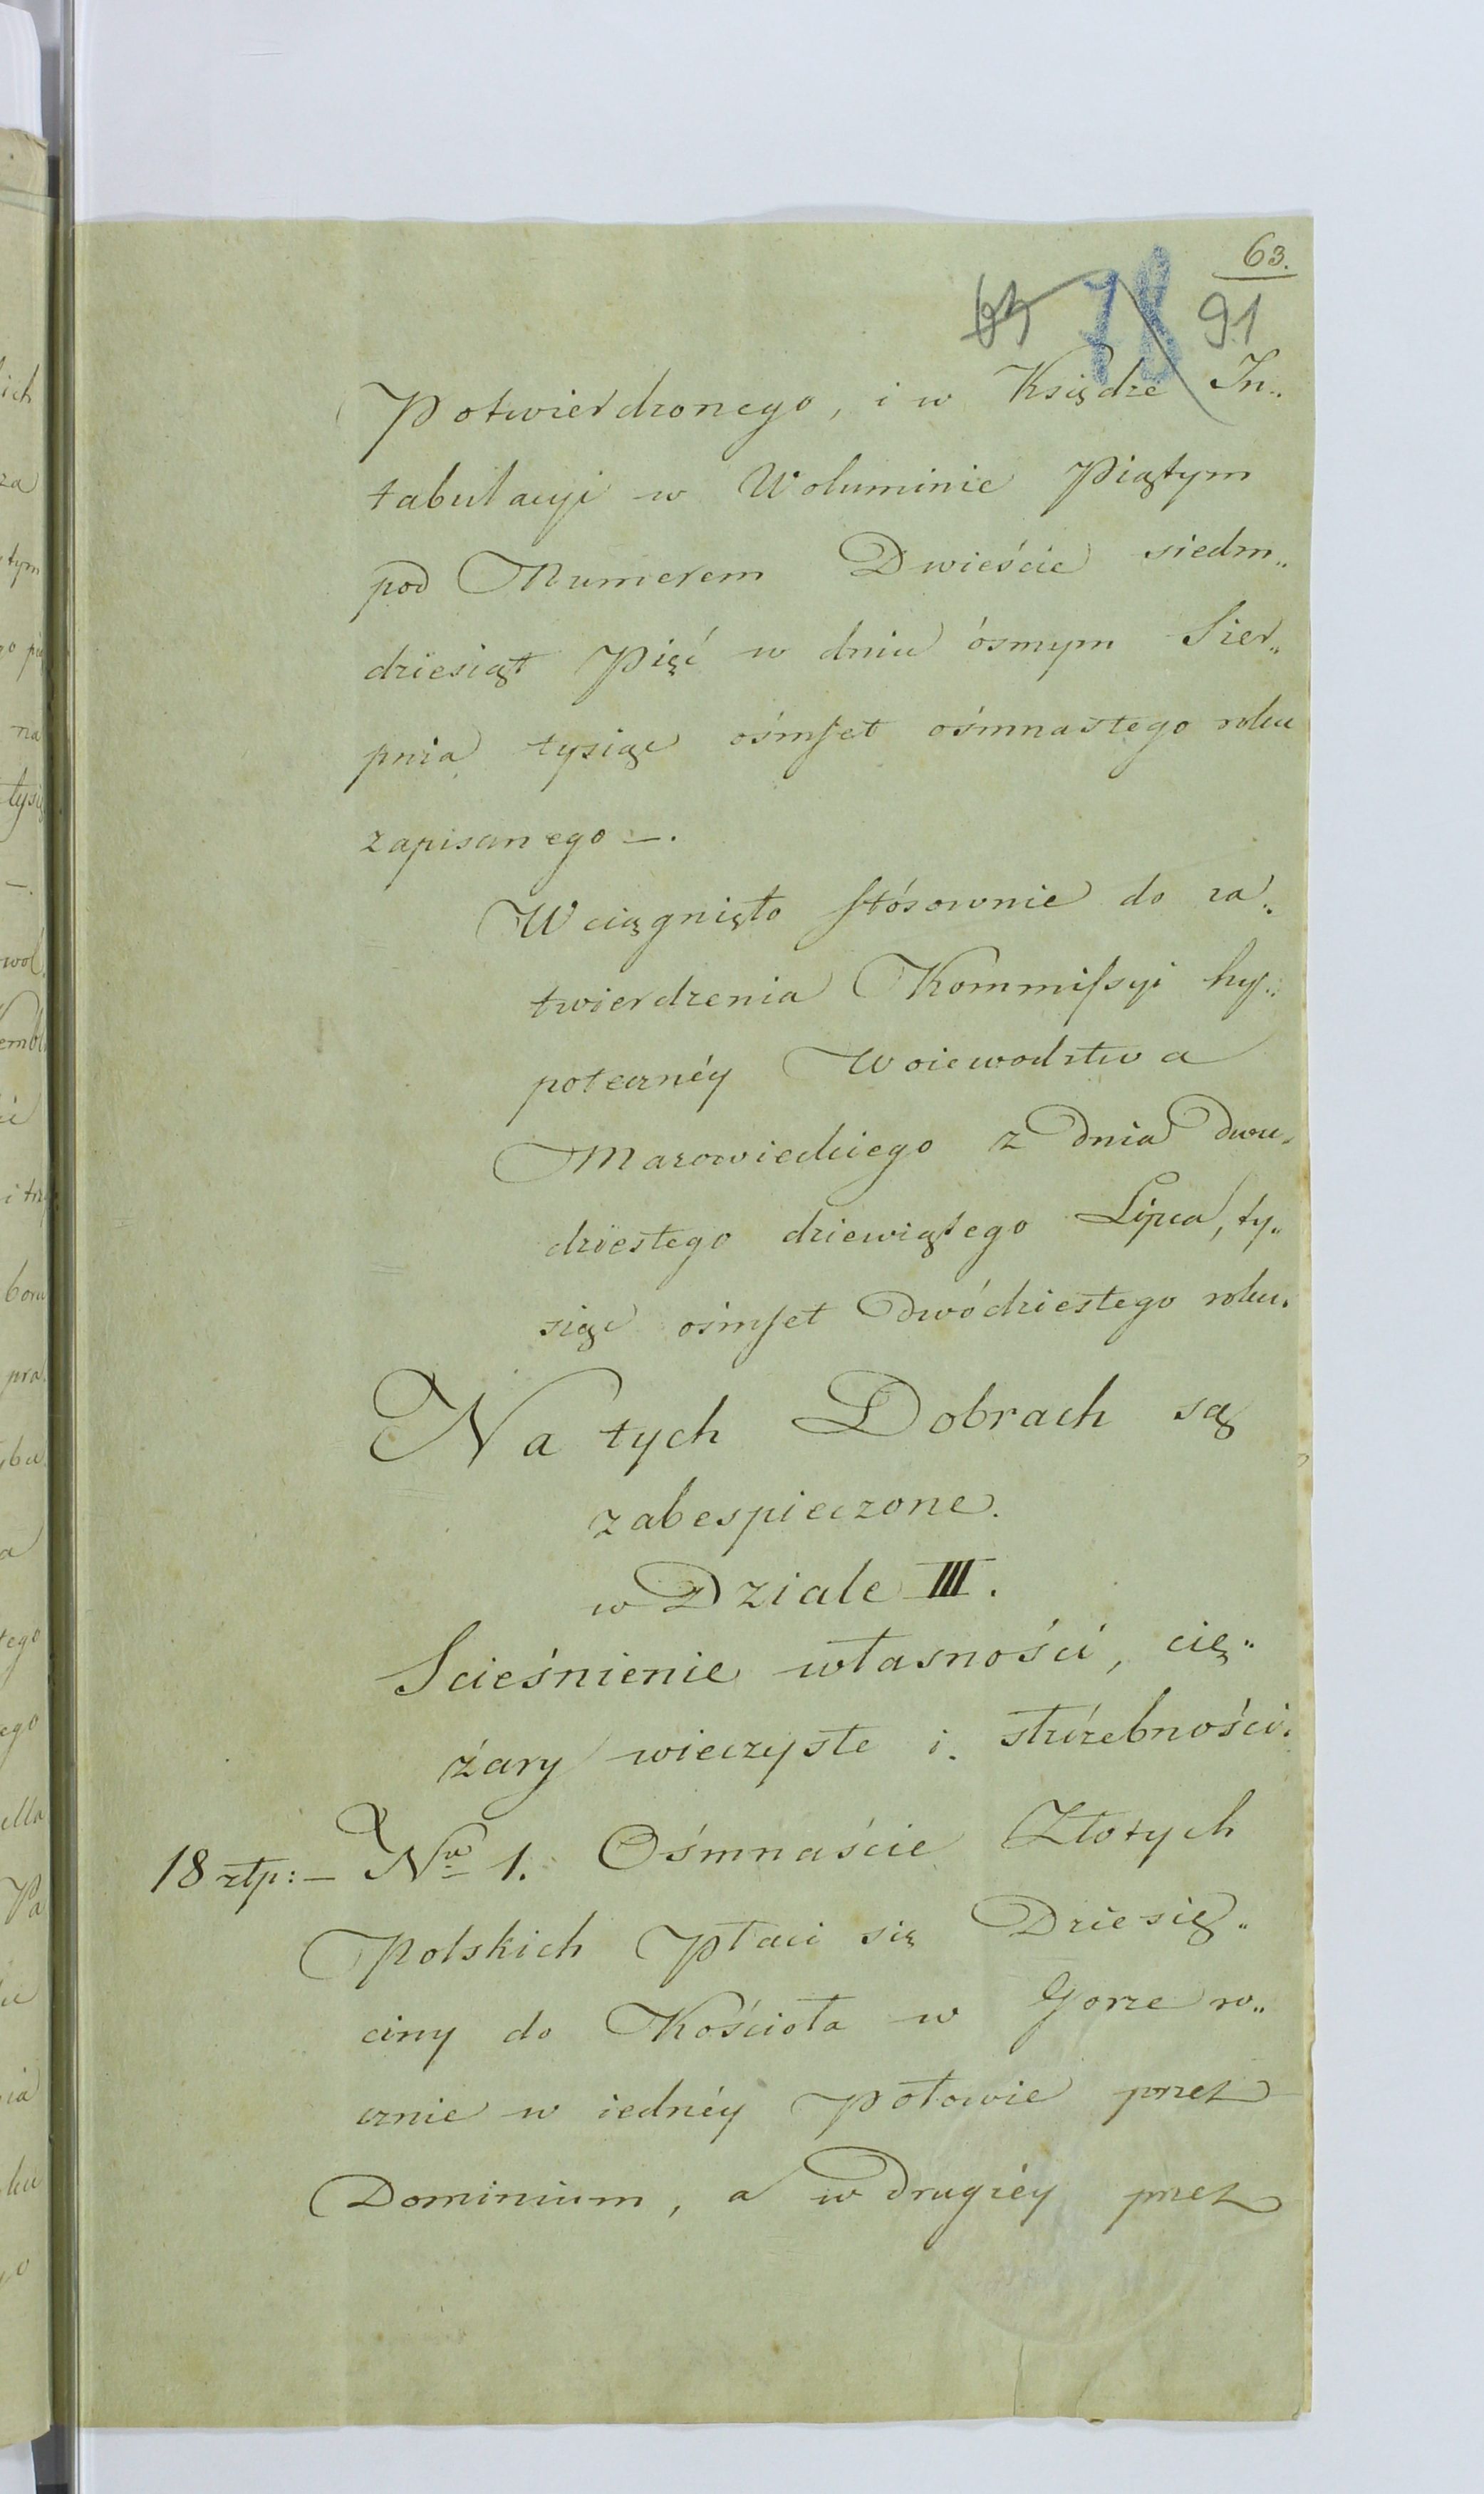 63.
63 78 91
Potwierdzonego, i w Księdze In„
tabulacyi w Woluminie Piątym
pod Numerem Dwieście siedm„
dziesiąt Pięć w dniu ósmym Sier„
pnia tysiąc ośmset ośmnastego roku
zapisanego —.
Wciągnięto stósownie do za„
twierdzenia Kommissyi hy„
potecznéy Woiewodztwa
Mazowieckiego z Dnia dwu„
dziestego dziewiątego Lipca, ty„
siąc ośmset dwódziestego roku.
Na tych Dobrach są
zabespieczone.
w Dziale III.
Scieśnienie własności, cię„
żary wieczyste i służebności.
18 złp: — Nro 1. Ośmnaście Złotych
Polskich Płaci się Dziesię„
ciny do Kościoła w Gorze ro„
cznie w iednéy Połowie przez
Dominium, a w drugiéy przez